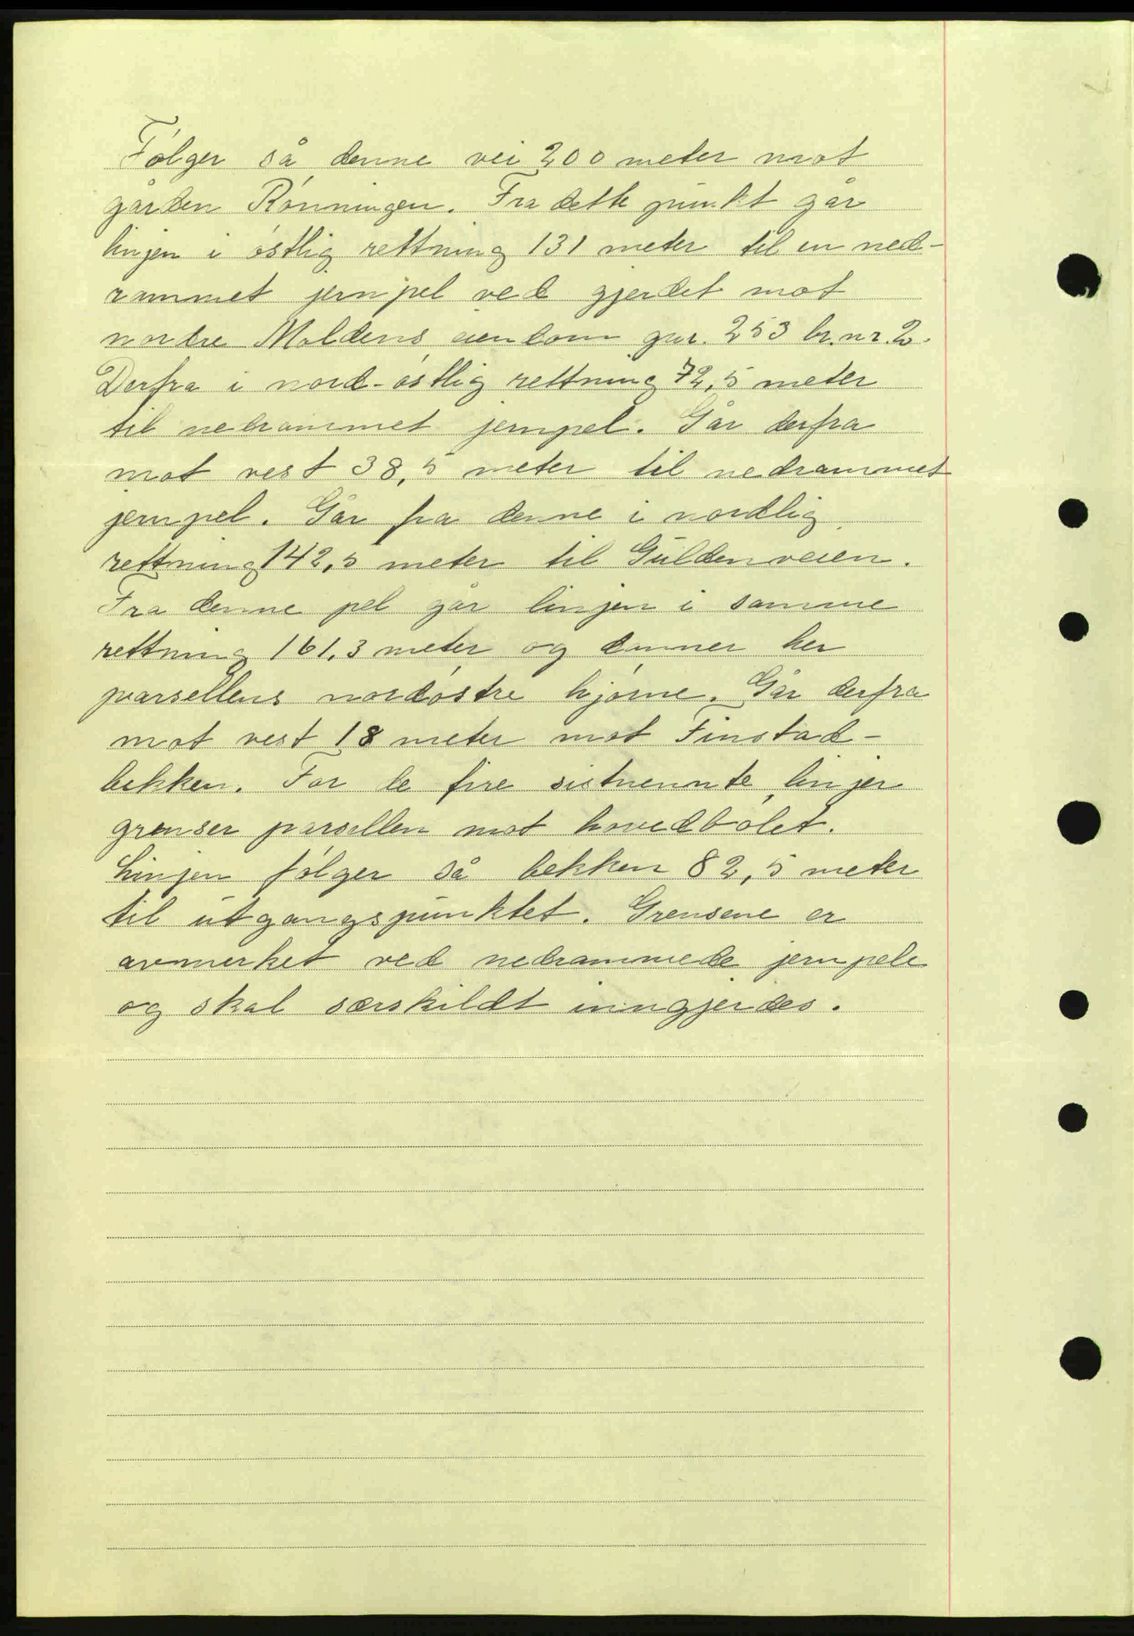 Følger så denne vei 200 meter mot
gården Rønningen. Fra dette punkt går
linjen i østlig rettning 131 meter til en ned-
rammet jernpel ved gjerdet mot
nordre Moldens eiendom gnr. 253 br.nr.2.
Derfra i nord-østlig rettning 72,5 meter
til nedrammet jernpel. Går derfra
mot vest 38,5 meter til nedrammet
jernpel. Går fra denne i nordlig
rettning 142,5 meter til Guldenveien.
Fra denne pel går linjen i samme
rettning 161,3 meter og danner her
parsellens nordøstre hjørne. Går derfra
mot vest 18 meter mot Finstad-
bekken. For de fire sistnevnte linjer
grenser parsellen mot hovedbølet.
Linjen følger så bekken 82,5 meter
til utgangspunktet. Grensene er
avmerket ved nedrammede jernpele
og skal særskildt inngjerdes.